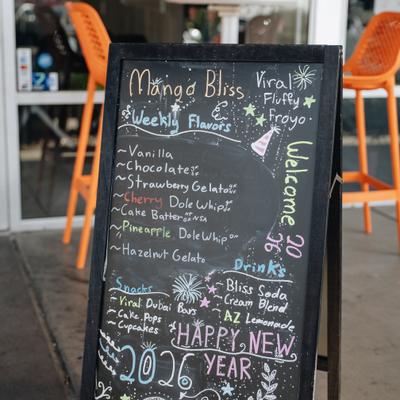 Mango Bliss
Viral
Fluffy
Froyo
Weekly Flavors
~Vanilla
~Chocolate
~Strawberry Gelato
~Cherry Dole Whip
~Cake Batter NSA
~Pineapple Dole Whip
~Hazelnut Gelato
Welcome 2026
Snacks
~Viral Dubai Bars
~Cake Pops
~Cupcakes
Drinks
~Bliss Soda
~Cream Blend
~AZ Lemonade
HAPPY NEW
2026 YEAR